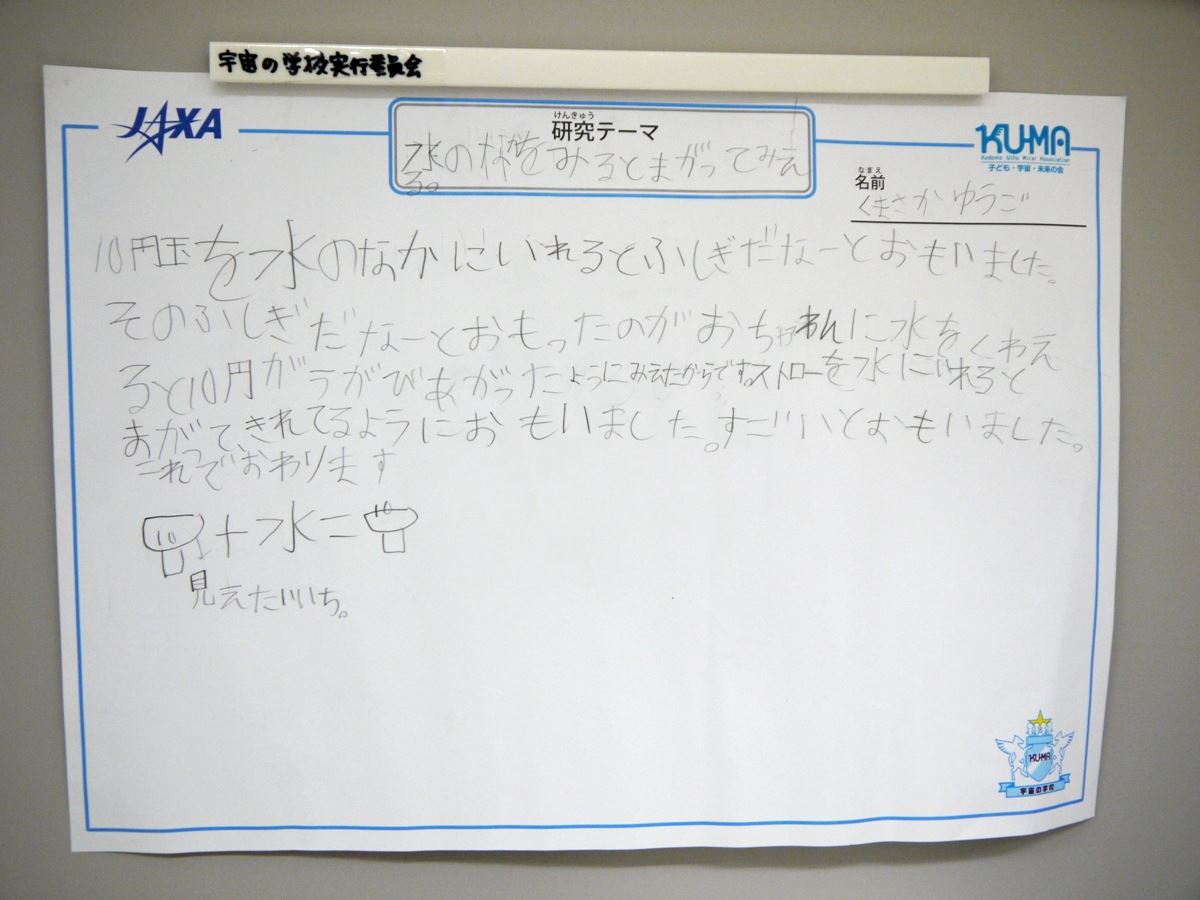 宇宙の学校実行委員会
JAXA
けんきゅう
研究テーマ
水の中をみるとまがってみえ
る。
KU-MA
Kodomo Uchu Mirai Association
子ども・宇宙・未来の会
なまえ
名前
くまさかゆうご
10円玉を水のなかにいれるとふしぎだなーとおもいました。
そのふしぎだなーとおもったのがおちゃわんに水をくわえ
ると10円がうがびあがったようにみえたからです。ストローを水にいれると
まがって、きれてるようにおもいました。すごいとおもいました。
これでおわります
10+水=10
見えたいち。
KU-MA
宇宙の学校